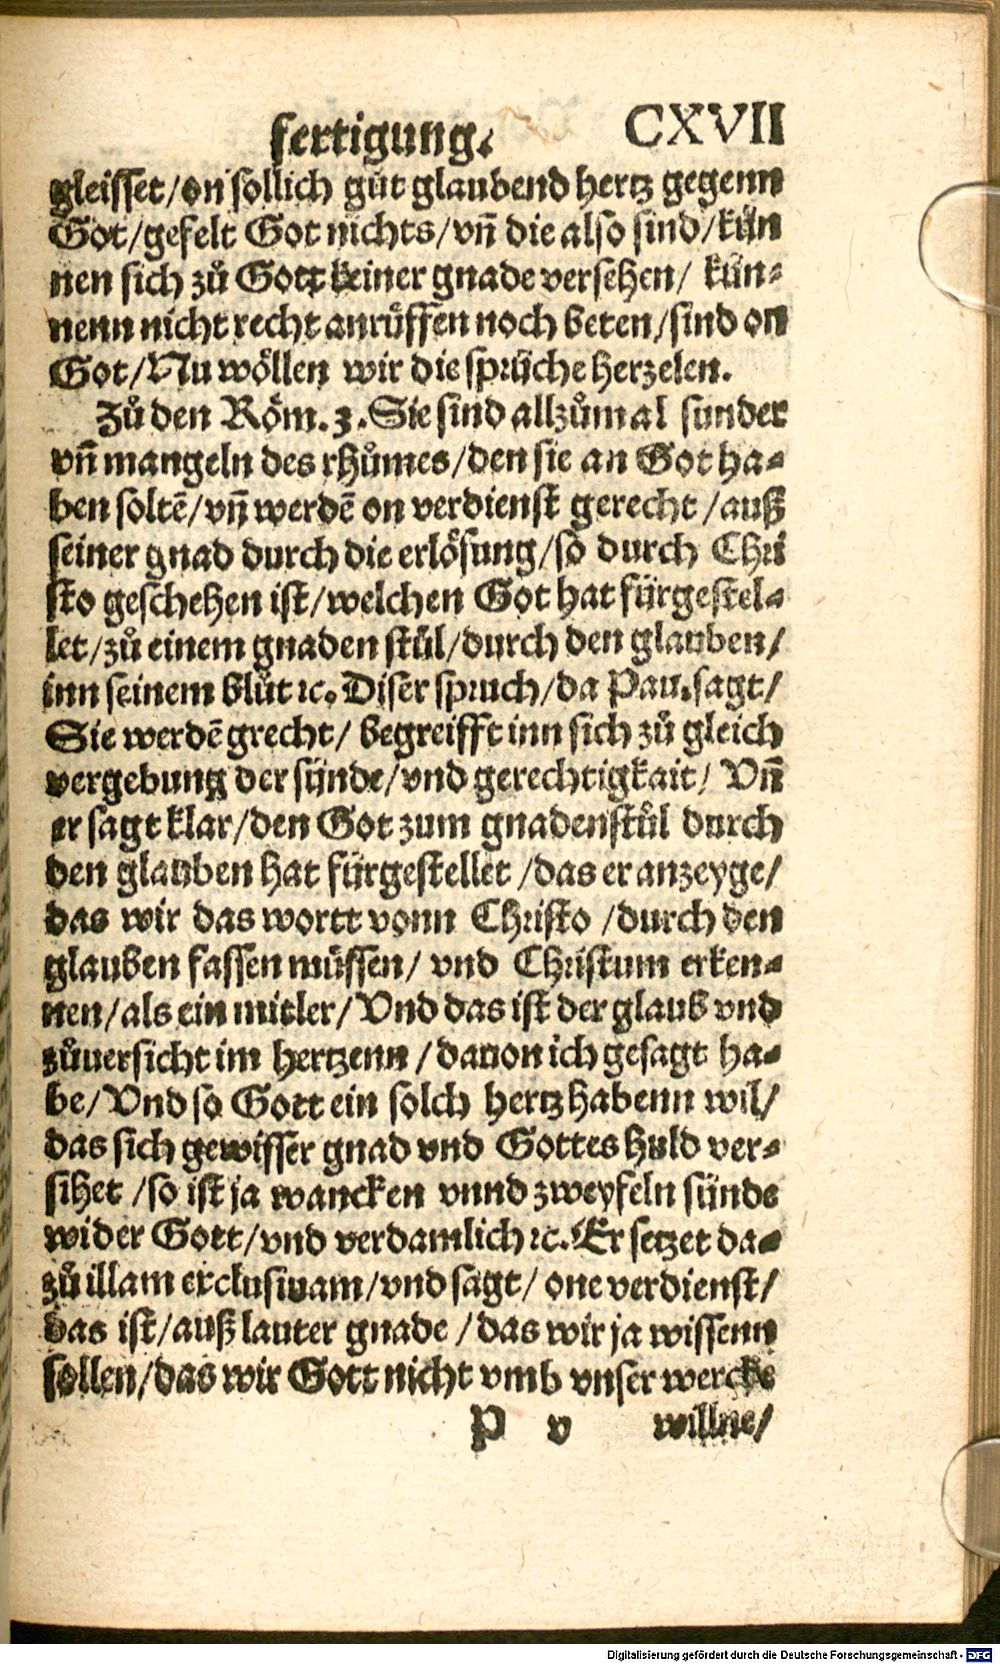 fertigung. CXVII
gleisset/on sollich gůt glaubend hertz gegenn
Got/gefelt Got nichts/vn̄ die also sind/kün
nen sich zů Gott keiner gnade versehen/ kün⸗
nenn nicht recht anrůffen noch beten/sind on
Got/Nu wöllen wir die sprüche herzelen.
Zů den Röm. 3. Sie sind allzůmal sunder
vn̄ mangeln des rhůmes/den sie an Got ha⸗
ben soltē/vn̄ werdē on verdienst gerecht/auß
seiner gnad durch die erlösung/so durch Chri
sto geschehen ist/welchen Got hat fürgestel⸗
let/zů einem gnaden stůl/durch den glauben/
inn seinem blůt ꝛc. Diser spruch/da Pau. sagt/
Sie werdē grecht/ begreifft inn sich zů gleich
vergebung der sünde/vnd gerechtigkait/ Vn̄
er sagt klar/den Got zum gnadenstůl durch
den glauben hat fürgestellet/das er anzeyge/
das wir das wortt vonn Christo/durch den
glauben fassen müssen/ vnd Christum erken⸗
nen/als ein mitler/Vnd das ist der glaub vnd
zůuersicht im hertzenn/dauon ich gesagt ha⸗
be/Vnd so Gott ein solch hertz habenn wil/
das sich gewisser gnad vnd Gottes huld ver⸗
sihet/so ist ja wancken vnnd zweyfeln sünde
wider Gott/vnd verdamlich ꝛc. Er setzet da⸗
zů illam exclusiuam/vnd sagt/ one verdienst/
das ist/auß lauter gnade/das wir ja wissenn
sollen/das wir Gott nicht vmb vnser wercke
P v willne/
Digitalisierung gefördert durch die Deutsche Forschungsgemeinschaft - DFG